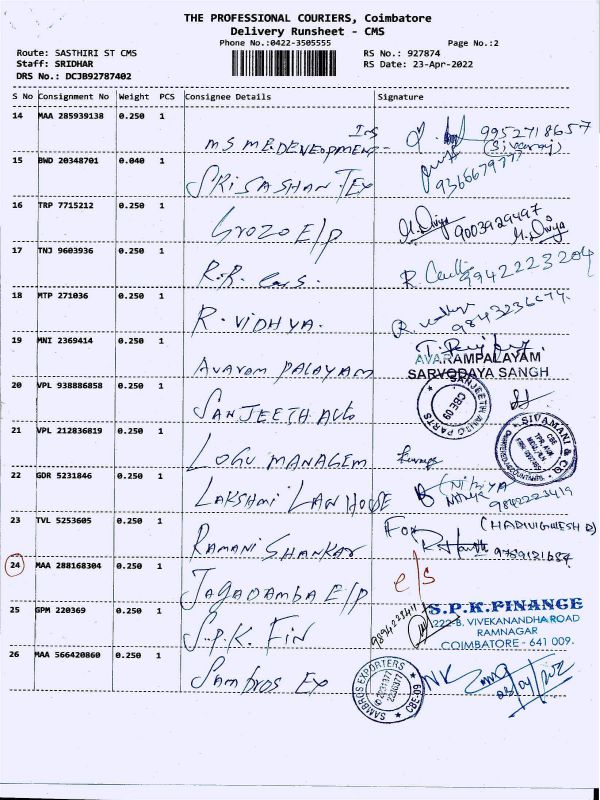 THE PROFESSIONAL COURIERS, Coimbatore
Delivery Runsheet - CMS
Phone No.:0422-3505555 Page No.:2
Route: SASTHIRI ST CMS RS No.: 927874
Staff: SRIDHAR RS Date: 23-Apr-2022
DRS No.: DCJB92787402
S No Consignment No Weight PCS Consignee Details Signature
14 MAA 285939138 0.250 1
MS M.B.DEVEOPMENT 9952718657
(Sivaraj)
15 BWD 20348701 0.040 1
SRI SASHAN TEX
16 TRP 7715212 0.250 1
GROZO E/P M.Divya 9003929497
M.Divya
17 TNJ 9603936 0.250 1
R.R. Cars. R. 9942223204
18 MTP 271036 0.250 1
R. VIDHYA.
19 MNI 2369414 0.250 1
AVARAM PALAYAM AVARAMPALAYAM
SARVODAYA SANGH
20 VPL 938886858 0.250 1
SANJEETH Auto SANJEETH AUTO PARTS
CBE 09
21 VPL 212836819 0.250 1 SIVAMANI & CO
CHARTERED ACCOUNTANTS
LOGU MANAGEM
22 GDR 5231846 0.250 1
LAKSHMI LAW HOUSE Nithiya
9842223419
23 TVL 5253605 0.250 1
RAMANI SHANKAR For
24 MAA 288168304 0.250 1
JAGADAMBA E/P
25 GPM 220369 0.250 1 S.P.K.FINANCE
222-B, VIVEKANANDHA ROAD
RAMNAGAR
COIMBATORE - 641 009.
S.P.K. FIN 9894223411
26 MAA 566420860 0.250 1
SAMBROS EX SAMBROS EXPORTERS
CBE-09